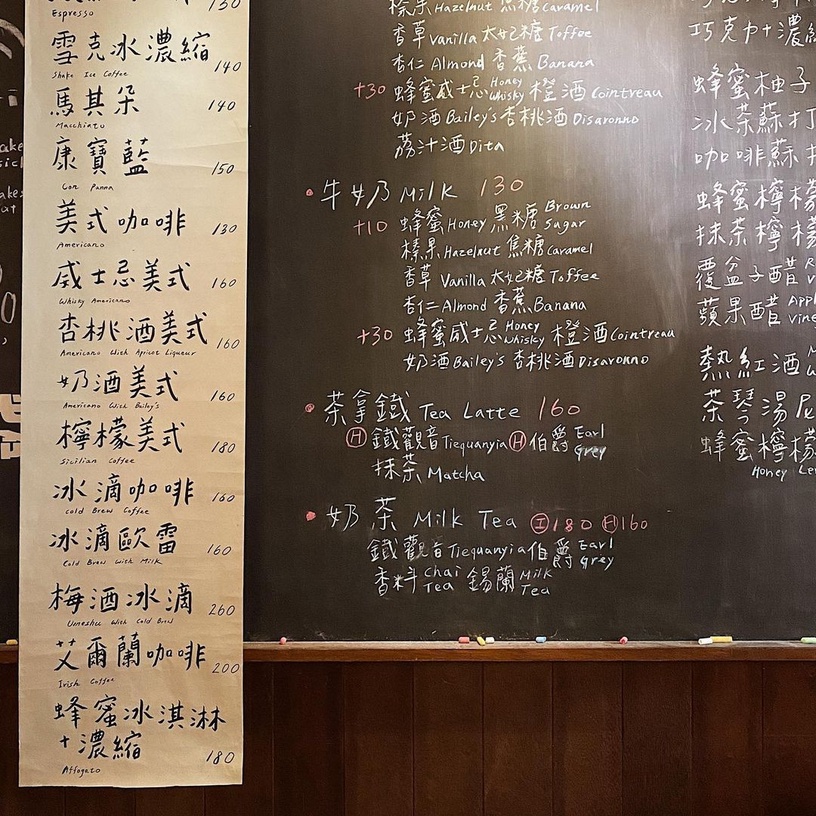 130
Espresso
雪克冰濃縮 140
Shake Ice Coffee
馬其朵 140
Macchiato
康寶藍 150
Con Panna
美式咖啡 130
Americano
威士忌美式 160
Whisky Americano
杏桃酒美式 160
Americano With Apricot Liqueur
奶酒美式 160
Americano With Bailey's
檸檬美式 180
Sicilian Coffee
冰滴咖啡 160
Cold Brew Coffee
冰滴歐雷 160
Cold Brew With Milk
梅酒冰滴 260
Umeshu With Cold Brew
艾爾蘭咖啡 200
Irish Coffee
蜂蜜冰淇淋
+濃縮 180
Affogato
榛果 Hazelnut 焦糖 Caramel
香草 Vanilla 太妃糖 Toffee
杏仁 Almond 香蕉 Banana
+30 蜂蜜威士忌 Honey Whisky 橙酒 Cointreau
奶酒 Bailey's 杏桃酒 Disaronno
荔汁酒 Dita
牛奶 Milk 130
+10 蜂蜜 Honey 黑糖 Brown Sugar
榛果 Hazelnut 焦糖 Caramel
香草 Vanilla 太妃糖 Toffee
杏仁 Almond 香蕉 Banana
+30 蜂蜜威士忌 Honey Whisky 橙酒 Cointreau
奶酒 Bailey's 杏桃酒 Disaronno
茶拿鐵 Tea Latte 160
Ⓗ 鐵觀音 Tiequanyia Ⓗ 伯爵 Earl Grey
抹茶 Matcha
奶茶 Milk Tea Ⓘ180 Ⓗ160
鐵觀音 Tiequanyia 伯爵 Earl Grey
香料 Chai Tea 錫蘭 Milk Tea
巧克力+濃
蜂蜜柚子
冰茶蘇打
咖啡蘇
蜂蜜檸檬
抹茶檸檬
覆盆子醋
蘋果醋
熱紅酒
茶琴湯尼
蜂蜜檸檬
Honey